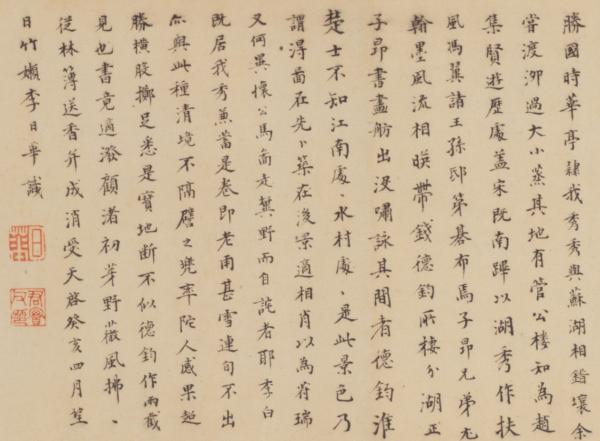 勝國時華亭隸我秀秀與蘇湖相錯壤余
嘗渡泖過大小蒸其地有管公樓知為趙
集賢遊歷處蓋宋既南蹕以湖秀作扶
風馮翼諸王孫邸第碁布焉子昂兄弟尤
翰墨風流相暎帶錢德鈞所棲分湖正
子昂書畫舫出沒嘯詠其間者德鈞淮
楚士不知江南處〻水村處〻是此景色乃
謂得啚在先卜築在後景適相肖以為符瑞
又何異懷公馬啚走冀野而自詫者耶李白
既居我秀兼蓄是卷即老甫甚雪連旬不出
亦與此種清境不隔譬之兜率陀人感果超
勝橫股擲足悉是寶地斷不似德鈞作兩截
見也書竟適潑顧渚初芽野薇風拂〻
從林薄送香并成消受天啓癸亥四月望
日竹嬾李日華識
日華